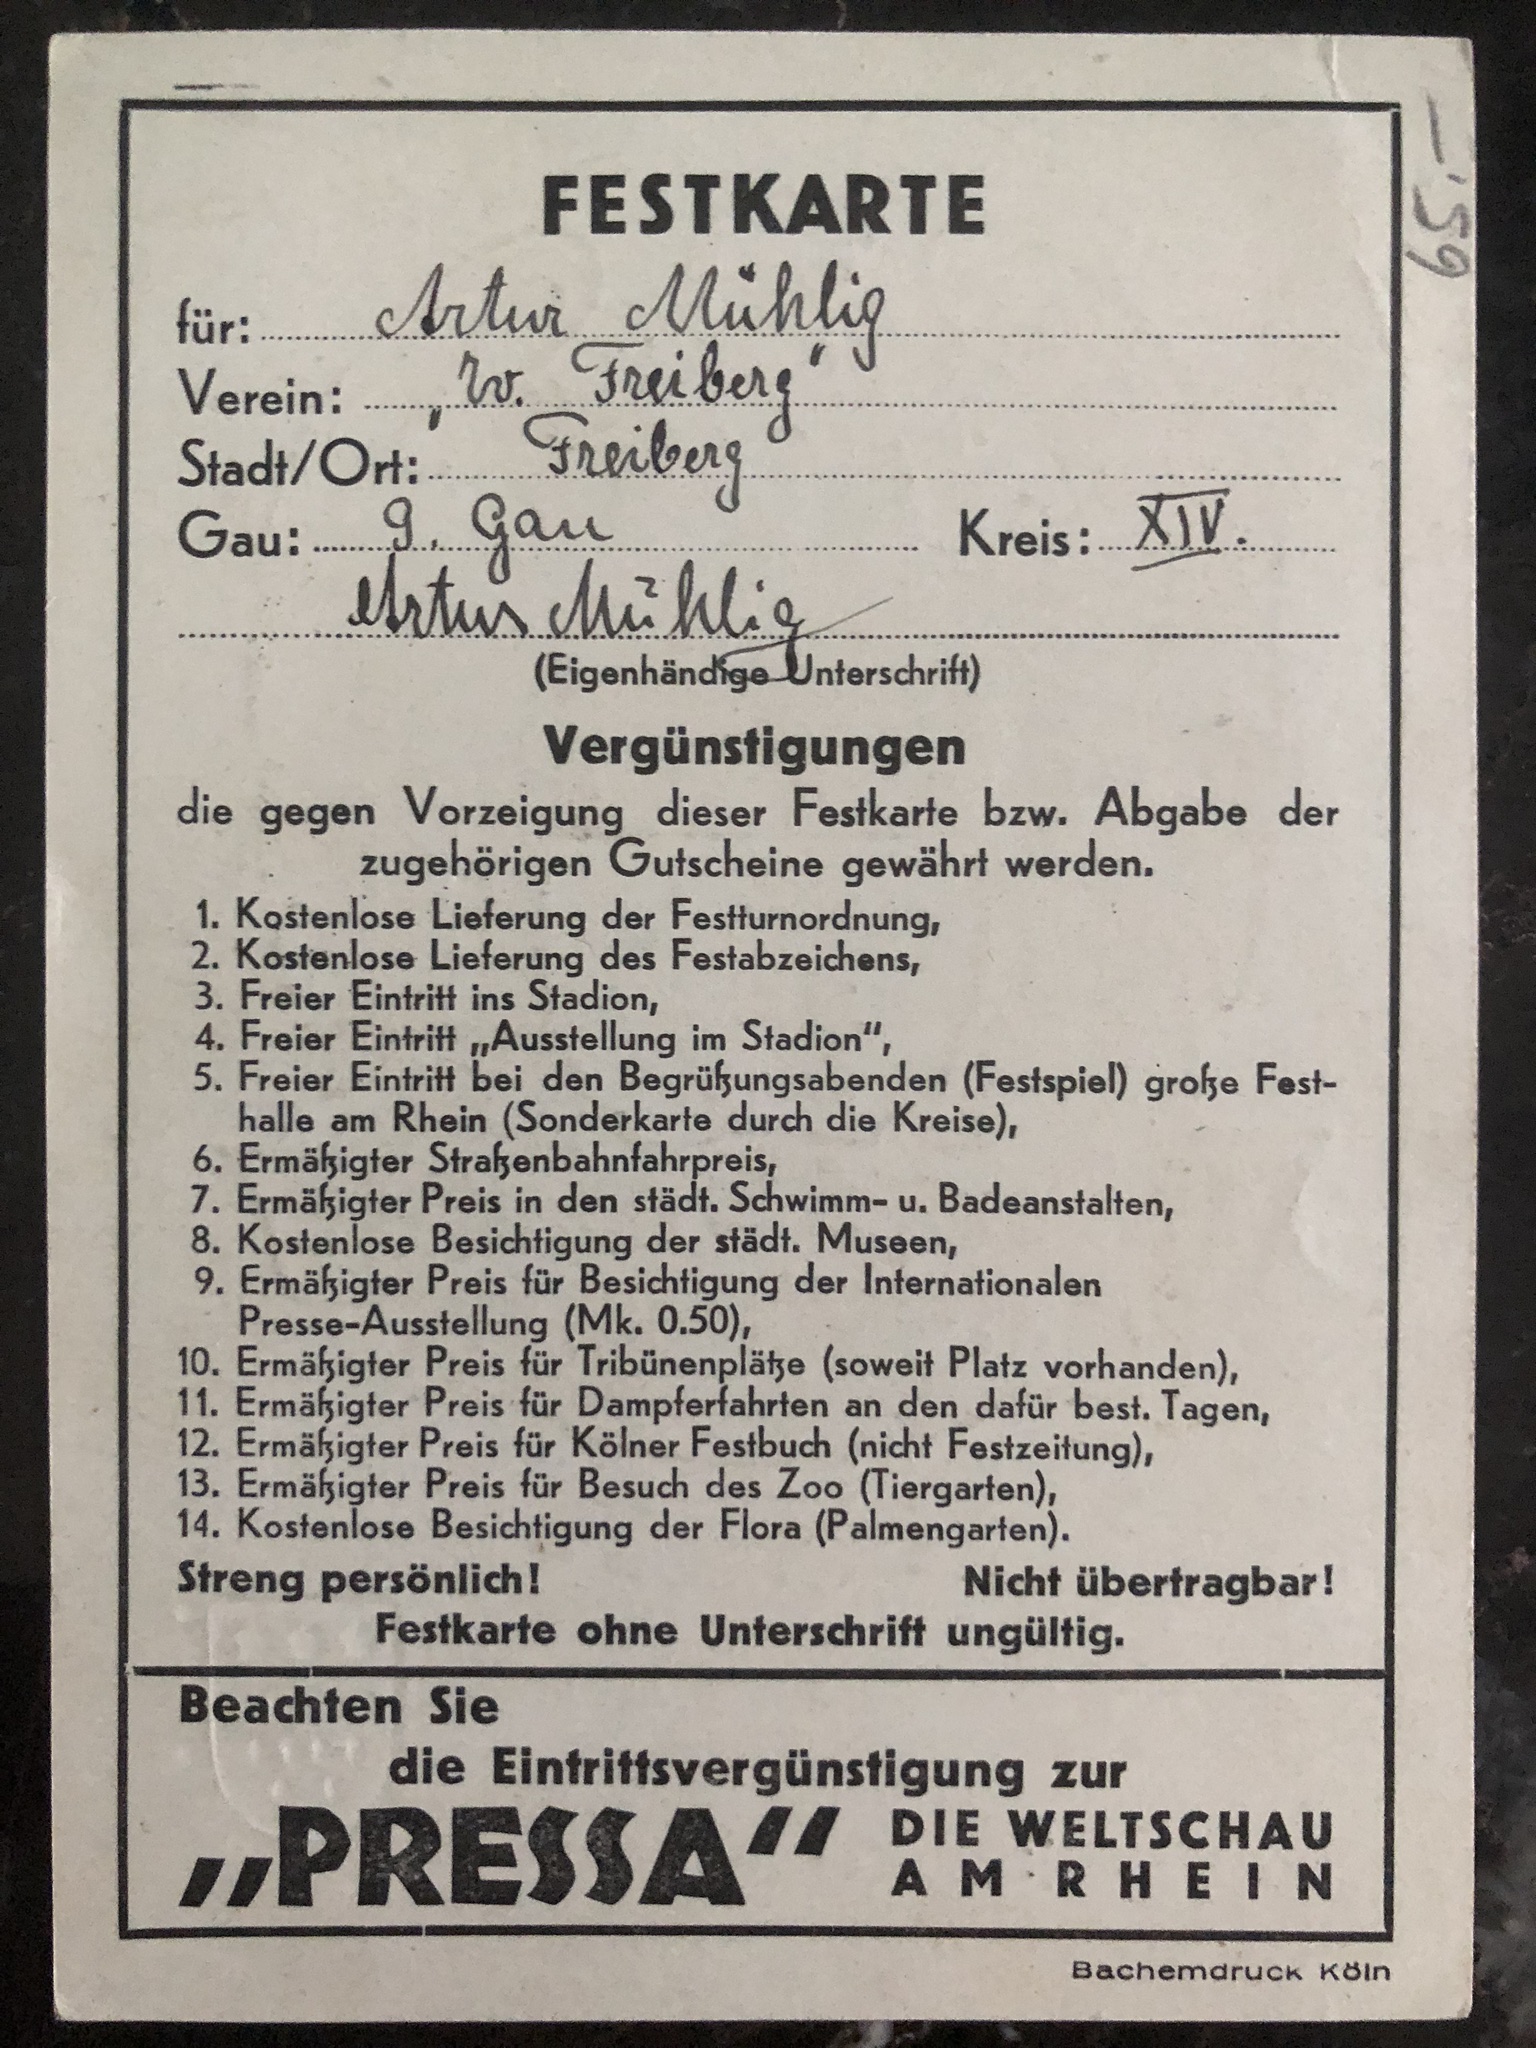 FESTKARTE
für: Artur Mühlig
Verein: „Tv. Freiberg“
Stadt/Ort: Freiberg
Gau: 9. Gau Kreis: XIV.
Artur Mühlig
(Eigenhändige Unterschrift)
Vergünstigungen
die gegen Vorzeigung dieser Festkarte bzw. Abgabe der
zugehörigen Gutscheine gewährt werden.
1. Kostenlose Lieferung der Festturnordnung,
2. Kostenlose Lieferung des Festabzeichens,
3. Freier Eintritt ins Stadion,
4. Freier Eintritt „Ausstellung im Stadion“,
5. Freier Eintritt bei den Begrüßungsabenden (Festspiel) große Fest-
halle am Rhein (Sonderkarte durch die Kreise),
6. Ermäßigter Straßenbahnfahrpreis,
7. Ermäßigter Preis in den städt. Schwimm- u. Badeanstalten,
8. Kostenlose Besichtigung der städt. Museen,
9. Ermäßigter Preis für Besichtigung der Internationalen
Presse-Ausstellung (Mk. 0.50),
10. Ermäßigter Preis für Tribünenplätze (soweit Platz vorhanden),
11. Ermäßigter Preis für Dampferfahrten an den dafür best. Tagen,
12. Ermäßigter Preis für Kölner Festbuch (nicht Festzeitung),
13. Ermäßigter Preis für Besuch des Zoo (Tiergarten),
14. Kostenlose Besichtigung der Flora (Palmengarten).
Streng persönlich! Nicht übertragbar!
Festkarte ohne Unterschrift ungültig.
Beachten Sie
die Eintrittsvergünstigung zur
„PRESSA“ DIE WELTSCHAU
AM RHEIN
Bachemdruck Köln
65,-